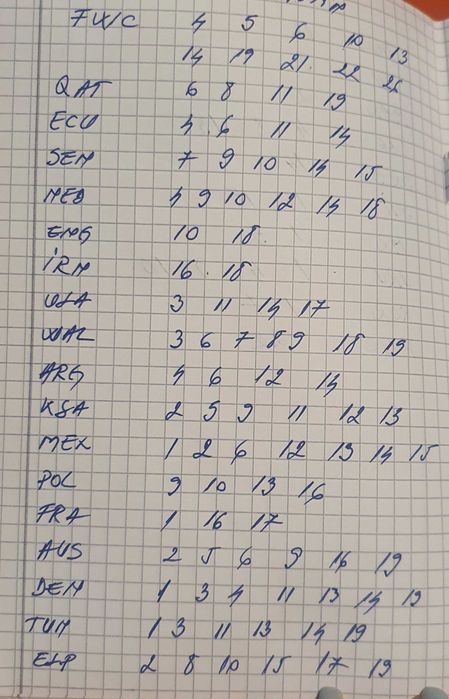 FWC 4 5 6 10 13
14 19 21 22 26
QAT 6 8 11 19
ECU 4 6 11 14
SEN 7 9 10 14 15
NED 4 9 10 12 14 18
ENG 10 18
İRN 16 18
USA 3 11 14 17
WAL 3 6 7 8 9 18 19
ARG 4 6 12 14
KSA 2 5 9 11 12 13
MEX 1 2 6 12 13 14 15
POL 9 10 13 16
FRA 1 16 17
AUS 2 5 6 9 16 19
DEN 1 3 4 11 13 14 19
TUN 1 3 11 13 14 19
ESP 2 8 10 15 17 19